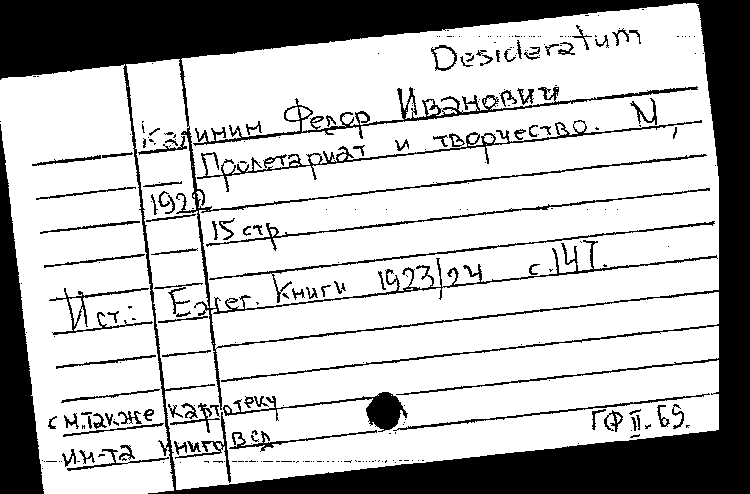 Desideratum
Калинин Федор Иванович
Пролетариат и творчество. М,
1922
15 стр.
Ист.: Ежег. Книги 1923/24 с.147.
см.также картотеку
ин-та книговед.
ГФ II-69.